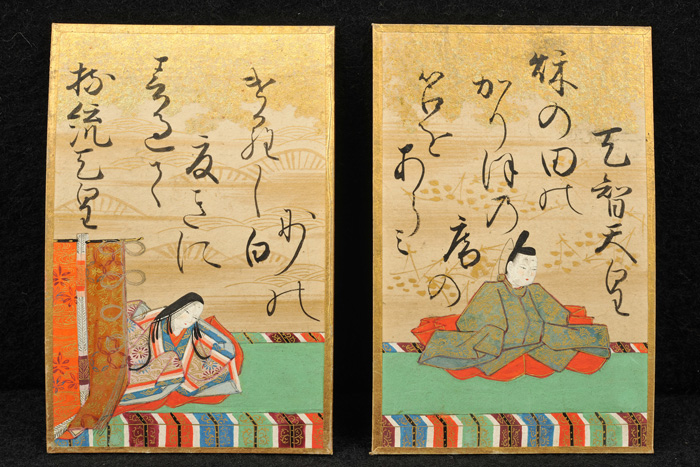 天智天皇
秋の田の
かりほ乃
庵の
苫を
あらミ
持統天皇
春過て
夏きに
けらし白
妙の